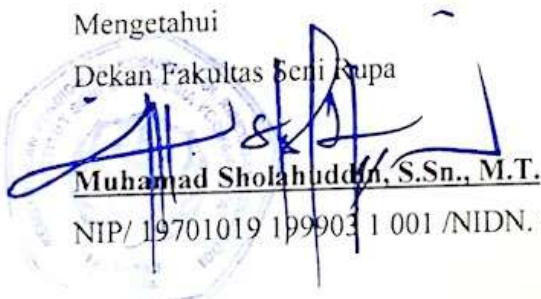 Mengetahui
Dekan Fakultas Seni Rupa
Muhamad Sholahuddin, S.Sn., M.T.
NIP/ 19701019 199903 1 001 /NIDN.